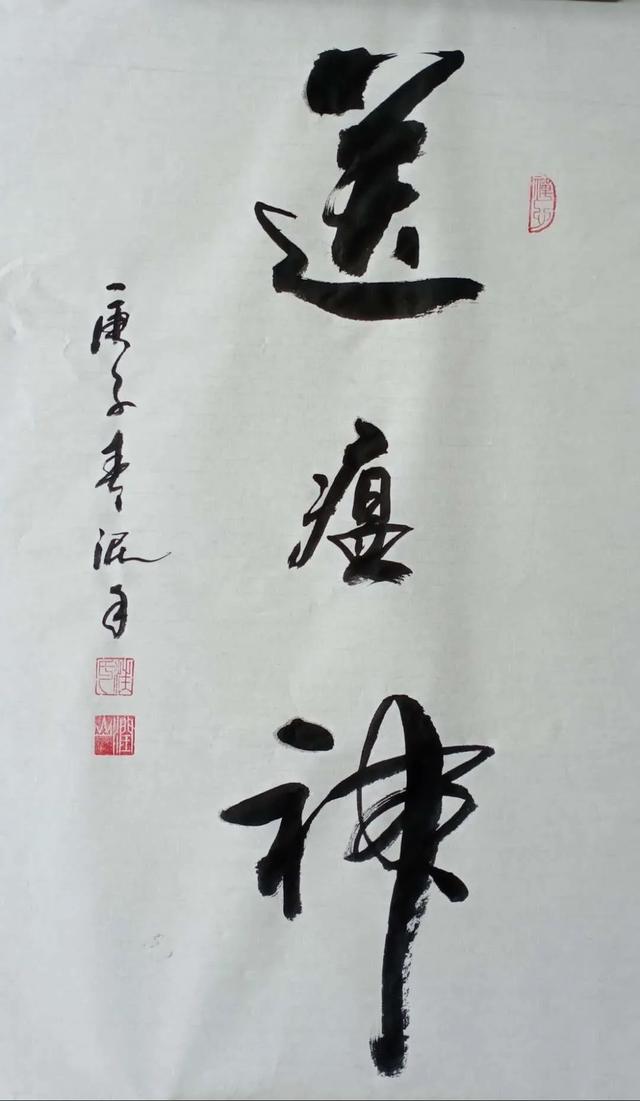 送瘟神
庚子春